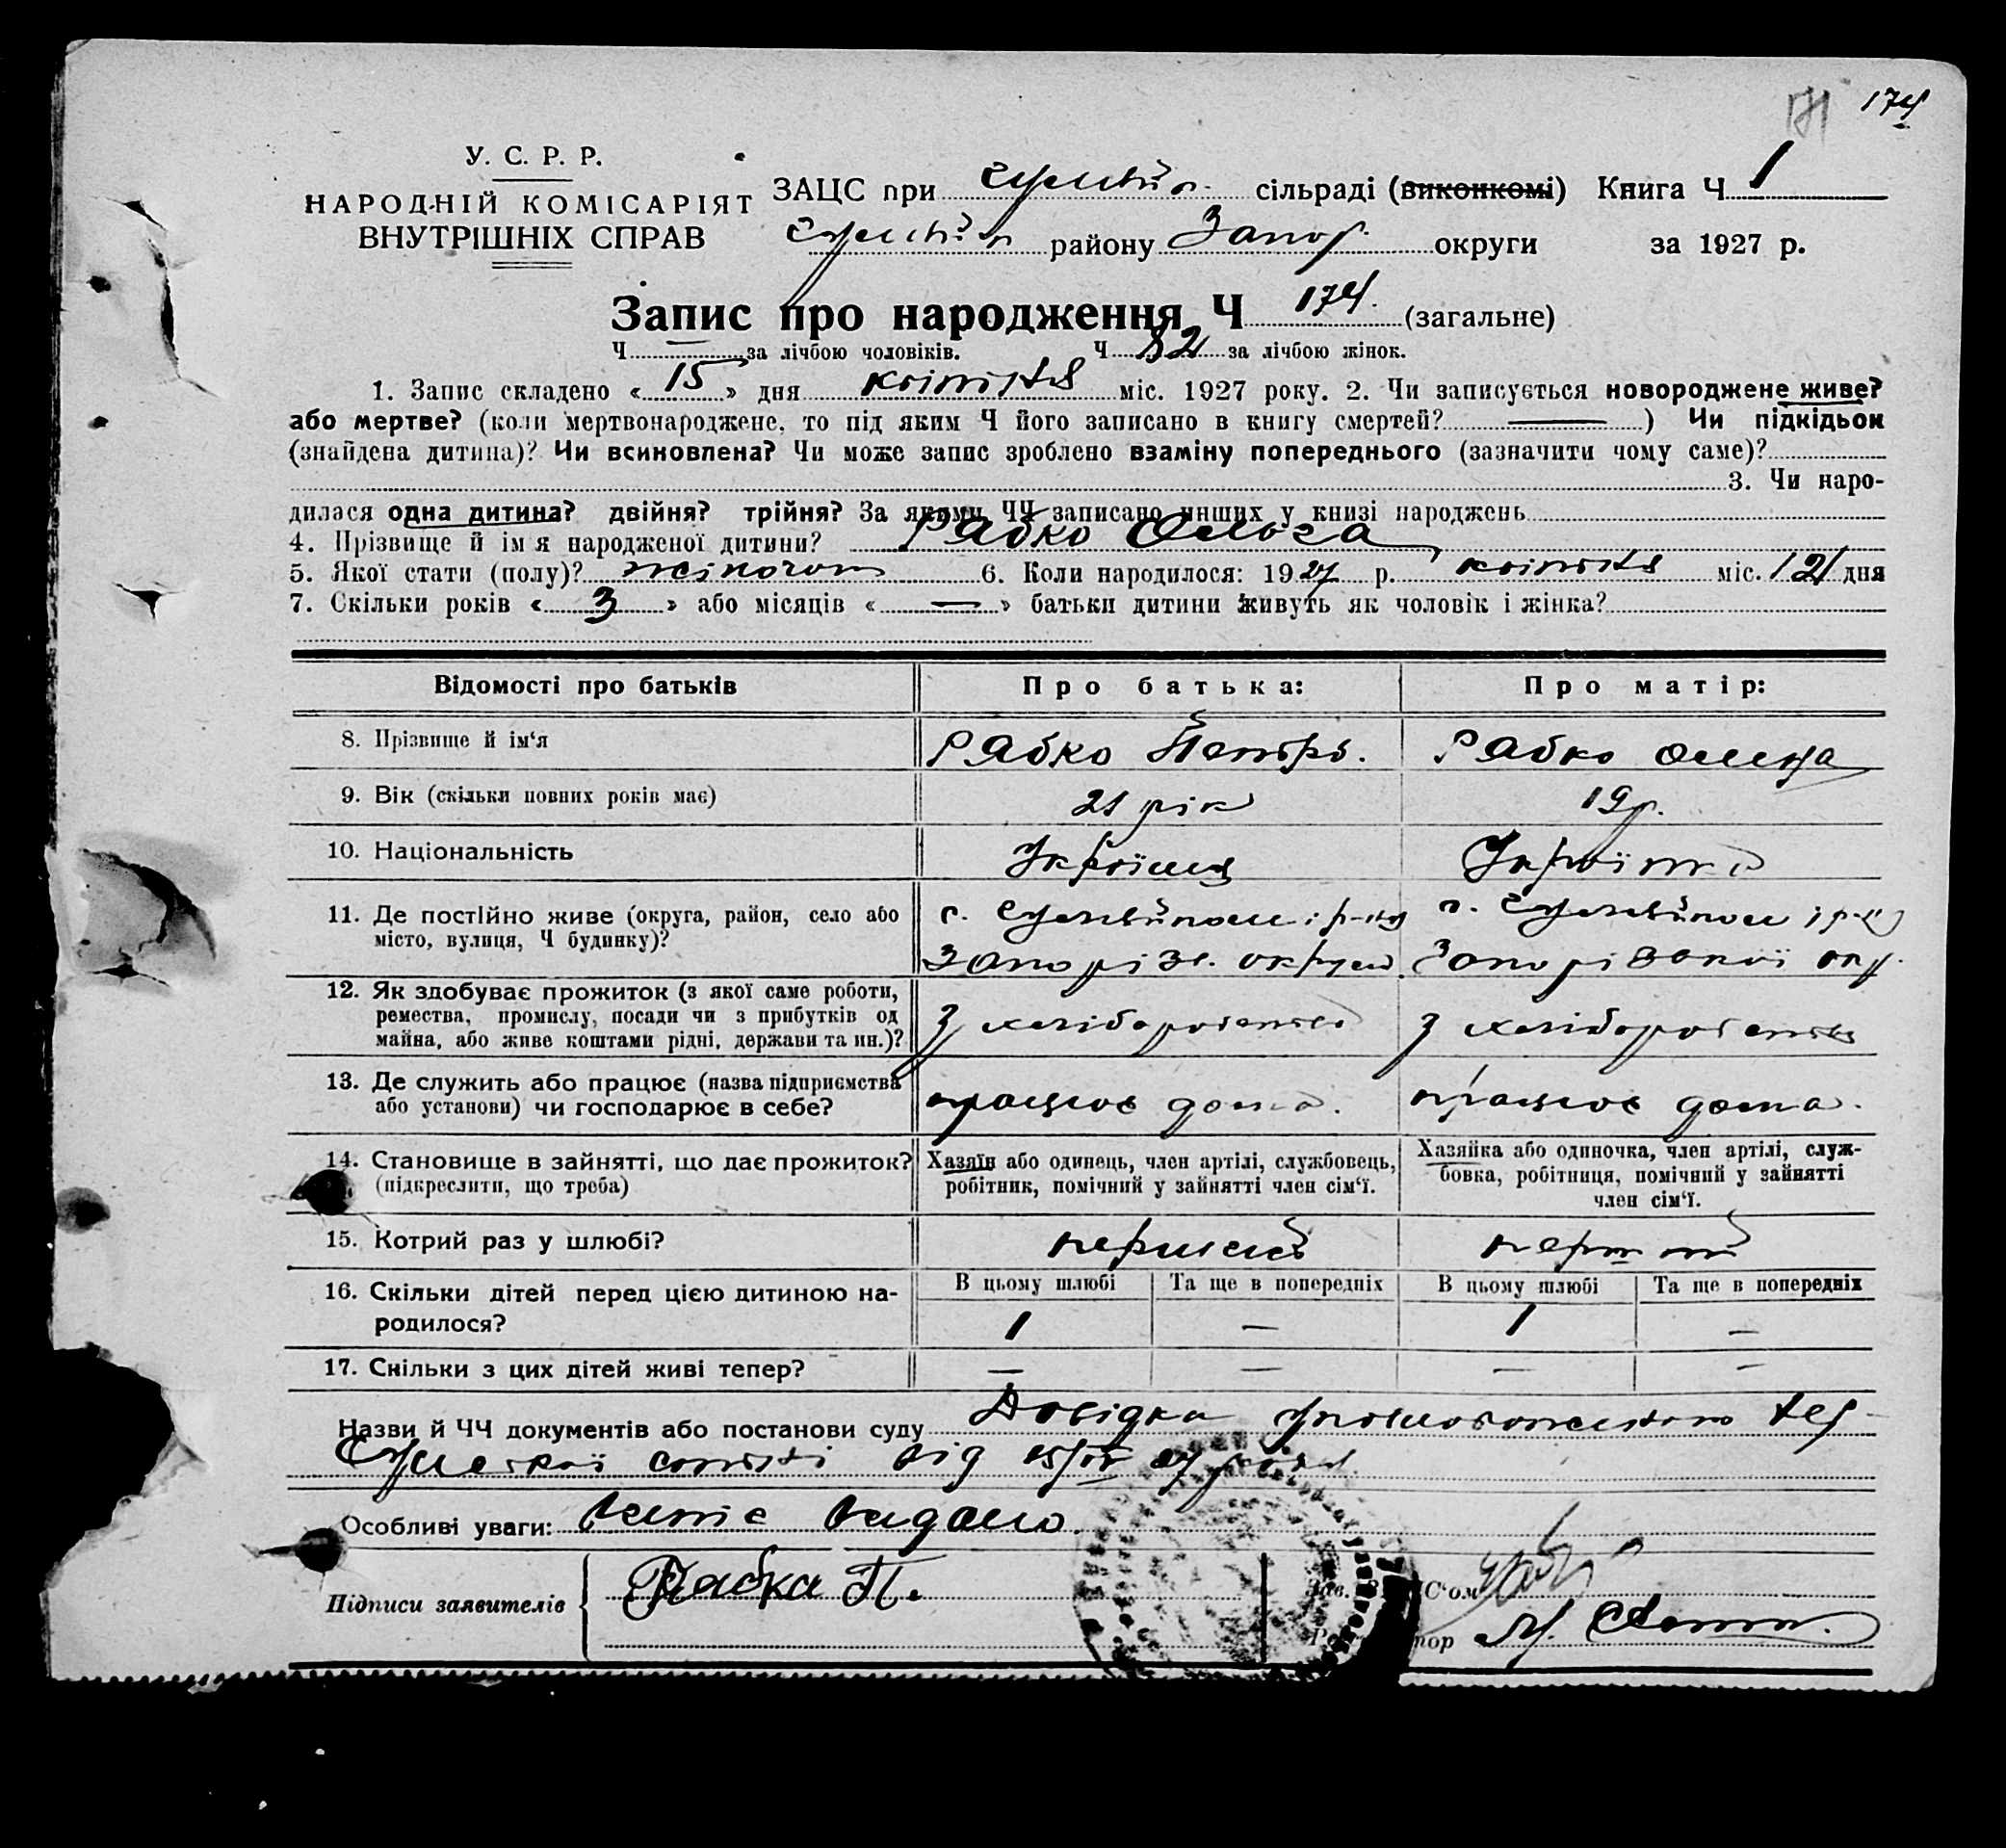 174
У. С. Р. Р.
НАРОДНІЙ КОМІСАРІЯТ
ВНУТРІШНІХ СПРАВ
ЗАЦС при сільраді (виконкомі) Книга Ч 1
району Запор. округи за 1927 р.
Запис про народження Ч 174. (загальне)
Ч — за лічбою чоловіків. Ч 82 за лічбою жінок.
1. Запис складено « 15 » дня квітня міс. 1927 року. 2. Чи записується новороджене живе?
або мертве? (коли мертвонароджене, то під яким Ч його записано в книгу смертей? — ) Чи підкідьок
(знайдена дитина)? Чи всиновлена? Чи може запис зроблено взаміну попереднього (зазначити чому саме)?
3. Чи наро-
дилася одна дитина? двійня? трійня? За якими ЧЧ записано инших у книзі народжень
4. Прізвище й ім'я народженої дитини? Рабко Ольга
5. Якої стати (полу)? жіночої 6. Коли народилося: 1927 р. квітня міс. 12 дня
7. Скільки років « 3 » або місяців « — » батьки дитини живуть як чоловік і жінка?
Відомості про батьків Про батька: Про матір:
8. Прізвище й ім'я Рабко Петро. Рабко Олена
9. Вік (скільки повних років має) 21 рік 19 р.
10. Національність Україн
11. Де постійно живе (округа, район, село або
місто, вулиця, Ч будинку)?
с. і р-ну с. і р-ну
Запоріз. округи. Запорізької окр.
12. Як здобуває прожиток (з якої саме роботи,
ремества, промислу, посади чи з прибутків од
майна, або живе коштами рідні, держави та ин.)?
З хліборобства З хліборобства
13. Де служить або працює (назва підприємства
або установи) чи господарює в себе?
працює дома. працює дома.
14. Становище в зайнятті, що дає прожиток?
(підкреслити, що треба)
Хазяїн або одинець, член артілі, службовець,
робітник, помічний у зайнятті член сім'ї.
Хазяйка або одиночка, член артілі, служ-
бовка, робітниця, помічний у зайнятті
член сім'ї.
15. Котрий раз у шлюбі? перший перший
16. Скільки дітей перед цією дитиною на-
родилося?
В цьому шлюбі Та ще в попередніх В цьому шлюбі Та ще в попередніх
1 — 1 —
17. Скільки з цих дітей живі тепер? — — — —
Назви й ЧЧ документів або постанови суду Довідка
від 15/IV 27 року.
Особливі уваги: Витяг видано.
Підписи заявителів Рабка П.